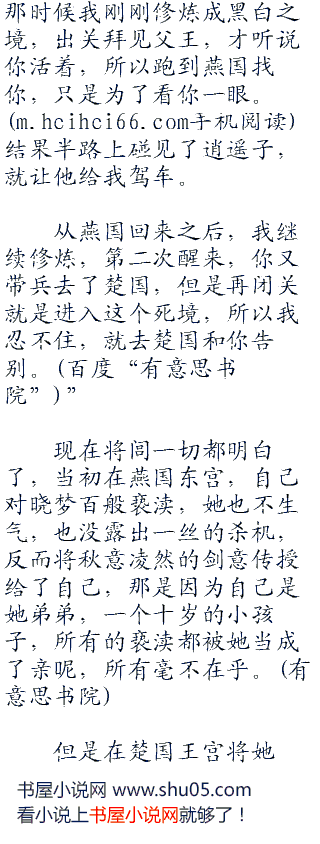 那时候我刚刚修炼成黑白之
境，出关拜见父王，才听说
你活着，所以跑到燕国找
你，只是为了看你一眼。
(m.hcihci66.com手机阅读)
结果半路上碰见了逍遥子，
就让他给我驾车。
从燕国回来之后，我继
续修炼，第二次醒来，你又
带兵去了楚国，但是再闭关
就是进入这个死境，所以我
忍不住，就去楚国和你告
别。(百度“有意思书
院”)”
现在将闾一切都明白
了，当初在燕国东宫，自己
对晓梦百般亵渎，她也不生
气，也没露出一丝的杀机，
反而将秋意凌然的剑意传授
给了自己，那是因为自己是
她弟弟，一个十岁的小孩
子，所有的亵渎都被她当成
了亲昵，所有毫不在乎。(有
意思书院)
但是在楚国王宫将她
书屋小说网 www.shu05.com
看小说上书屋小说网就够了！